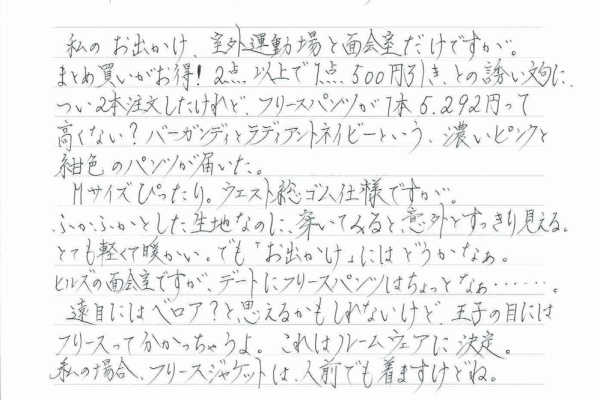 私の お出かけ、室外運動場と面会室だけですが。
まとめ買いがお得！2点以上で1点500円引き、との誘い文句に、
つい2本注文したけれど、フリースパンツが1本5.292円って
高くない？バーガンディとラディアントネイビーという、濃いピンクと
紺色のパンツが届いた。
Mサイズぴったり。ウエスト総ゴム仕様ですが。
ふかふかとした生地なのに、穿いてみると、意外とすっきり見える。
とても軽くて暖かい。でも「お出かけ」にはどうかなぁ。
ヒルズの面会室ですが、デートにフリースパンツはちょっとなぁ……。
遠目にはベロア？と思えるかもしれないけど、王子の目には
フリースって分かっちゃうよ。これはルームウェアに決定。
私の場合、フリースジャケットは、人前でも着ますけどね。